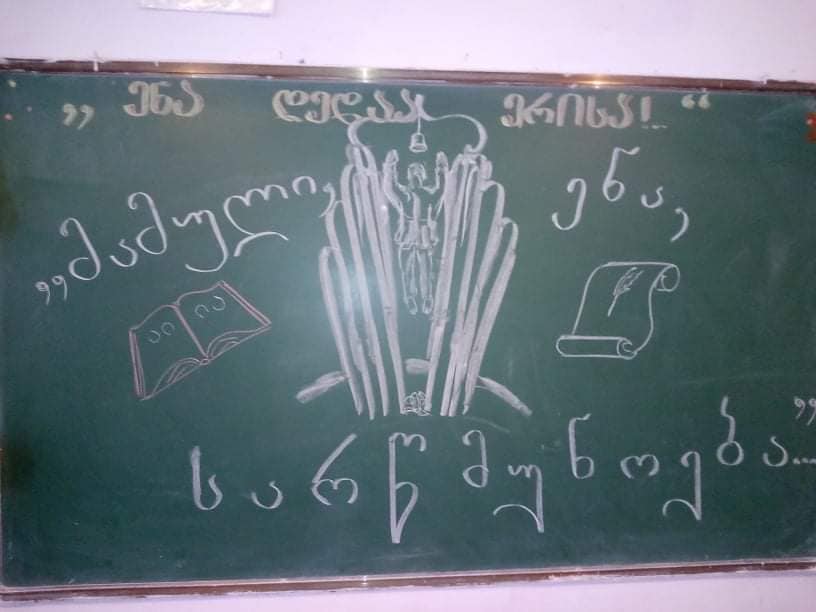 ,, ენა დედაა ერისა!... “
,,მამული, ენა,
აი ია
სარწმუნოება...”